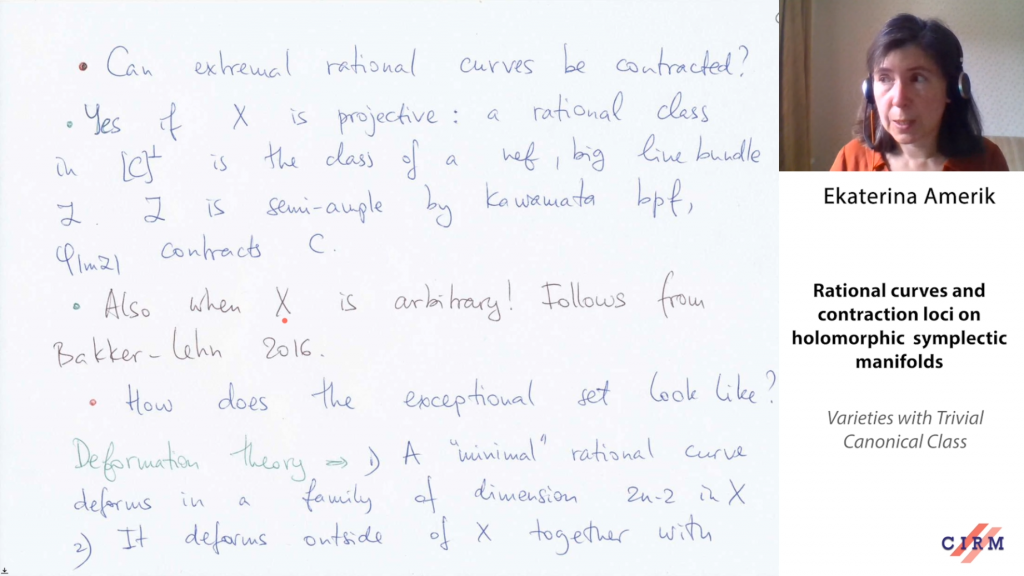 • Can extremal rational curves be contracted?
• Yes if X is projective: a rational class
in [C]⊥ is the class of a nef, big line bundle
L. L is semi-ample by Kawamata bpf,
φ|mL| contracts C.
• Also when X is arbitrary! Follows from
Bakker-Lehn 2016.
• How does the exceptional set look like?
Deformation theory ⇒ 1) A "minimal" rational curve
deforms in a family of dimension 2n-2 in X
2) It deforms outside of X together with
Ekaterina Amerik
Rational curves and
contraction loci on
holomorphic symplectic
manifolds
Varieties with Trivial
Canonical Class
CIRM